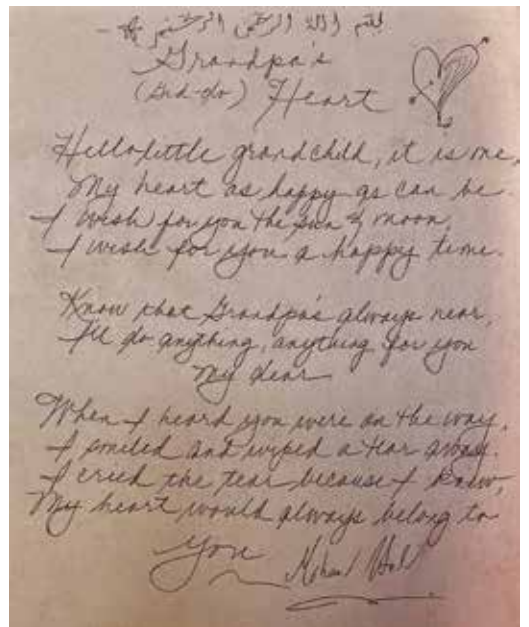 بسم الله الرحمن الرحيم
Grandpa's
(Gid-do) Heart
Hello little grandchild, it is me,
My heart as happy as can be.
I wish for you the sun & moon,
I wish for you a happy time.
Know that Grandpa's always near,
I'll do anything, anything for you
My dear
When I heard you were on the way,
I smiled and wiped a tear away.
I cried the tear because I knew,
My heart would always belong to
you